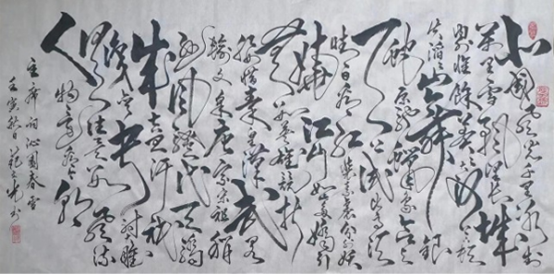 北国風光千里冰封
万里雪飘望长城内
外惟餘莽莽大河上下顿
失滔滔山舞銀
蛇原驰蜡象欲与
天公试比高须
晴日看红装素裹分外妖
娆江山如此多娇引
無数英雄竞折
腰惜秦皇汉武略
输文采唐宗宋祖稍
逊風骚一代天骄
成吉思汗只
识弯弓射大雕
俱往矣数風流
人物还看今朝
主席词沁園春雪
壬寅秋月